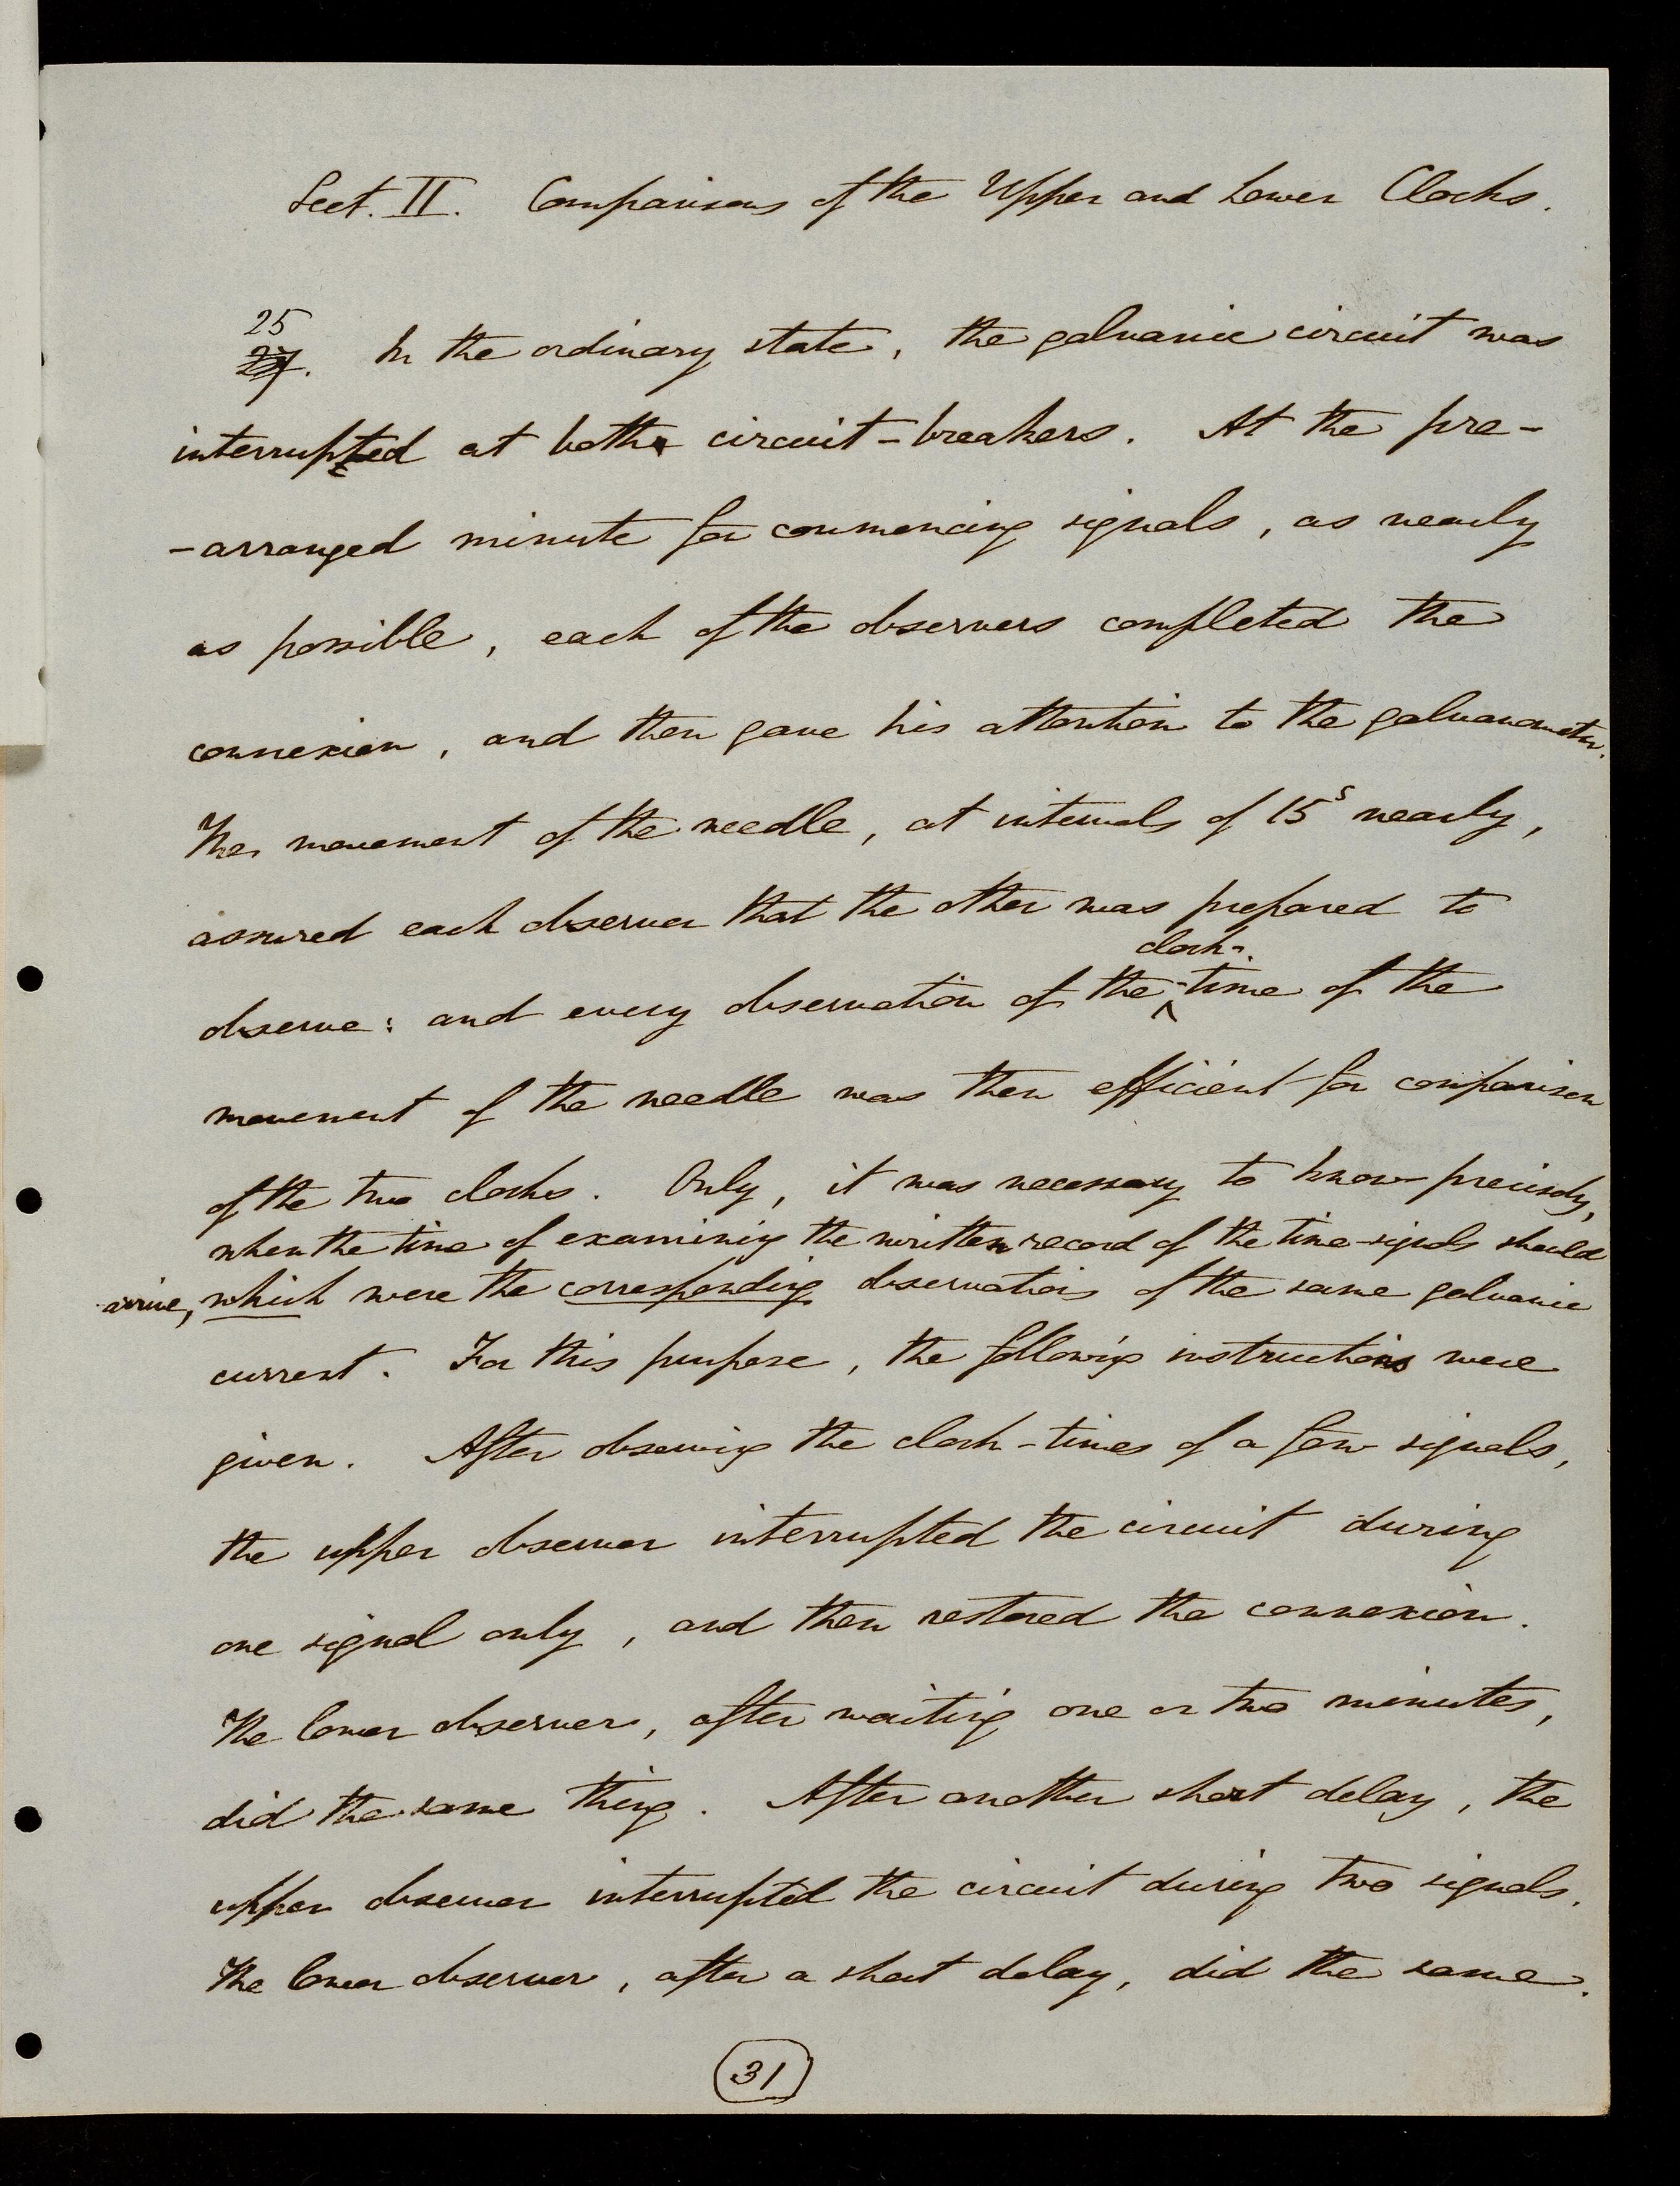 Sect. II. Comparisons of the Upper and Lower Clocks.
25
27. In the ordinary state, the galvanic circuit was
interrupted at both circuit-breakers. At the pre-
-arranged minute for commencing signals, as nearly
as possible, each of the observers completed the
connexion, and then gave his attention to the galvanometer.
The movement of the needle, at intervals of 15s nearly,
assured each observer that the other was prepared to
clock-
observe: and every observation of the time of the
movement of the needle was then efficient for comparison
of the two clocks. Only, it was necessary to know precisely,
when the time of examining the written record of the time-signals should
arrive, which were the corresponding observations of the same galvanic
current. For this purpose, the following instructions were
given. After observing the clock-times of a few signals,
the upper observer interrupted the circuit during
one signal only, and then restored the connexion.
The lower observer, after waiting one or two minutes,
did the same thing. After another short delay, the
upper observer interrupted the circuit during two signals.
The lower observer, after a short delay, did the same.
31